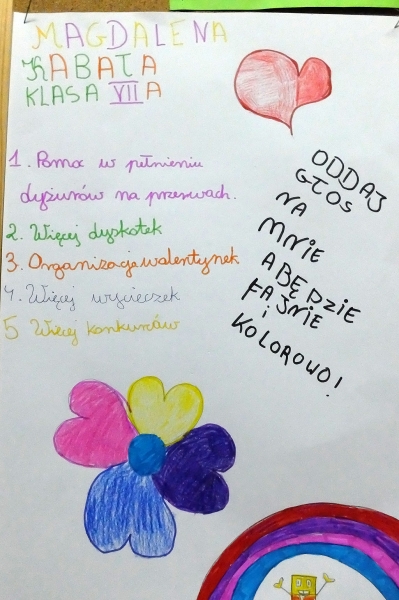 MAGDALENA
KABATA
KLASA VII A
1. Pomoc w pełnieniu
dyżurów na przerwach.
2. Więcej dyskotek
3. Organizacja walentynek
4. Więcej wycieczek
5 Więcej konkursów
ODDAJ
GŁOS
NA
MNIE
A BĘDZIE
FAJNIE
i
KOLOROWO!